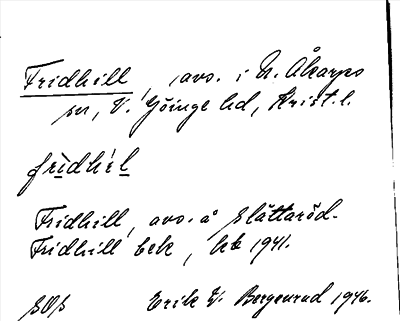 Fridhill, avs. i N. Åkarps
sn, V. Göinge hd, Krist. l.
frìdhìl
Fridhill, avs. å Slättaröd.
Fridhill bek, hk 1941.
SOS Erik W. Bergenrud 1946.